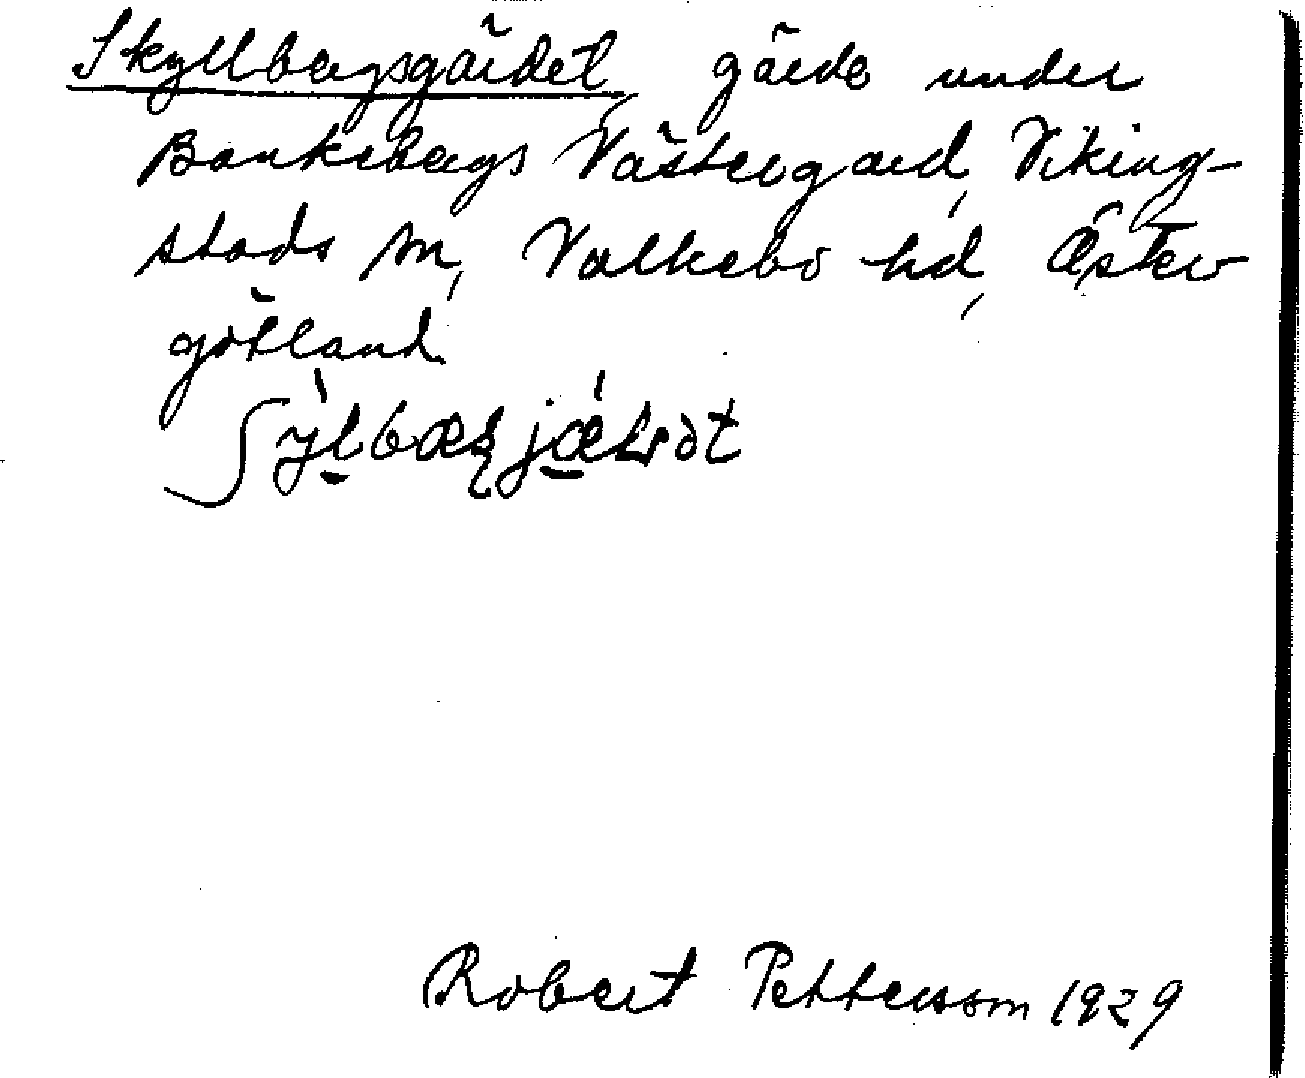 Skyllbergsgärdet, gärde under
Bankebergs Västergard, Viking-
stads sn, Valkebo hd, Öster
götland.
Robert Pettersson 1929